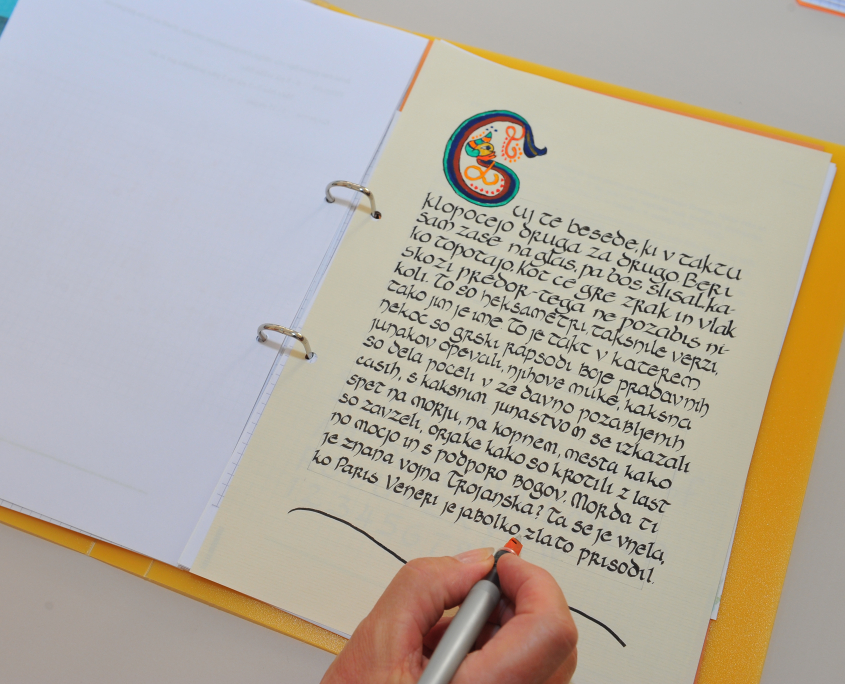 Cuj te besede, ki v taktu
klopocejo druga za drugo Beri
sam zase na glas, pa bos slisal, ka-
ko topotajo, kot ce gre zrak in vlak
skozi predor - tega ne pozabis ni-
koli. To so heksametri, taksnile verzi,
tako jim je ime To je takt v katerem
nekoc so grski rapsodi Boje pradavnih
junakov opevali, njihove muke, kaksna
so dela poceli v ze davno pozabljenih
casih, s kaksnim junastvom se izkazali
spet na morju, na kopnem, mesta kako
so zavzeli, orjake kako so krotili z last
no mocjo in s podporo Bogov. Morda ti
je znana vojna Trojanska? Ta se je vnela,
ko Paris Veneri je jabolko zlato prisodil.